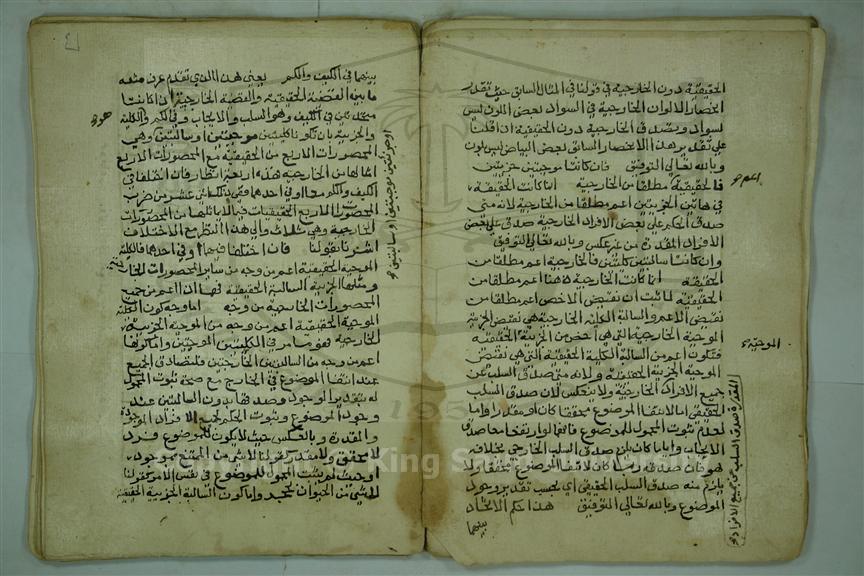 الحقيقية دون الخارجية في قولنا في المثال السابق حيث تقدر
انحصار الالوان الخارجية في السواد لبعض اللون ليس
لسواد ويصدق في الخارجية دون الحقيقية ان قلنا
على تقدير هذا الانحصار السابق لبعض البياض ليس بلون
وبالله تعالى التوفيق فان كانتا موجبتين جزئيتين
فالحقيقية مطلقا من الخارجية اما كانت الحقيقية
في هاتين الجزئيتين اعم مطلقا من الخارجية لانه متى
صدق الحكم على بعض الافراد الخارجية صدق على بعض
الافراد المقدرة من غير عكس وبالله تعالى التوفيق
وان كانتا سالبتين كليتين فالخارجية اعم مطلقا من
الحقيقية انما كانت الخارجية هنا اعم مطلقا من
الحقيقية لما ثبت ان نقيض الاخص اعم مطلقا من
نقيض الاعم والسالبة الكلية الخارجية هي نقيض الجزئية
الموجبة الخارجية التي هي اخص من الجزئية الحقيقية
فتكون اعم من السالبة الكلية الحقيقية التي هي نقيض
الموجبة الجزئية الحقيقية ولانه متى صدق السلب عن
جميع الافراد الخارجية ولا ينعكس لان صدق السلب
الحقيقي اما لانتفا الموضوع محققا كان او مقدرا واما
لعدم ثبوت المحمول للموضوع
الايجاب وايا ما كان يلزم صدق السلب الخارجي بخلافه
هو فان صدقه ربما كان لانتفا الموضوع محققا ولا
يلزم منه صدق السلب الحقيقي اي بحسب تقدير وجود
الموضوع وبالله تعالى التوفيق هذا حكم الاتحاد
بينهما
اعم
الموجبة
المقدرة صدق السلب عن جميع الافراد
٤
بينهما في الكيف والكم يعني هذا الذي تقدم عرف منه
ما بين القضية الحقيقية والقضية الخارجية ان كانتا
متفقتين في الكيف وهو السلب والايجاب وفي الكم والكلية
والجزئية بان تكونا كليتين موجبتين او سالبتين وهي
المحصورات الاربع من الحقيقية مع المحصورات الاربع
امثالها من الخارجية هذه اربعة انظار فان اختلفا في
الكيف والكم معا او في احدهما ففي ذلك اثنى عشر من ضرب
المحصورات الاربع الحقيقيات فيما لا يماثلها من المحصورات
الخارجية وهي ثلاث والى هذا النظر مع الاختلاف
اشرنا بقولنا فان اختلفا فيهما او في احدهما فالكلية
الموجبة الحقيقية اعم من وجه من ساير المحصورات الخارجية
ومثلها الجزئية السالبة الحقيقية فهما اعم من جميع
المحصورات الخارجية من وجه اما وجه كون الكلية
الموجبة الحقيقية اعم من وجه من الموجبة الجزئية
الخارجية فهو ما مر في الكليتين الموجبتين واما كونها
اعم من وجه من السالبتين الخارجيتين فلتصادق الجميع
عند انتفا الموضوع في الخارج مع صحة ثبوت المحمول
له بتقدير الوجود وصدقها بدون السالبتين عند
وجود الموضوع وثبوت الحكم لجميع الافراد الموجودة
والمقدرة وبالعكس حيث لا يكون للموضوع فرد
لا محقق ولا مقدر كقولنا لا شيء من الممتنع بموجود
او حيث لم يثبت المحمول للموضوع في نفس الامر كقولنا
لا شيء من الحيوان بحجر واما كون السالبة الجزئية الحقيقية
او جزئيتين موجبتين او سالبتين